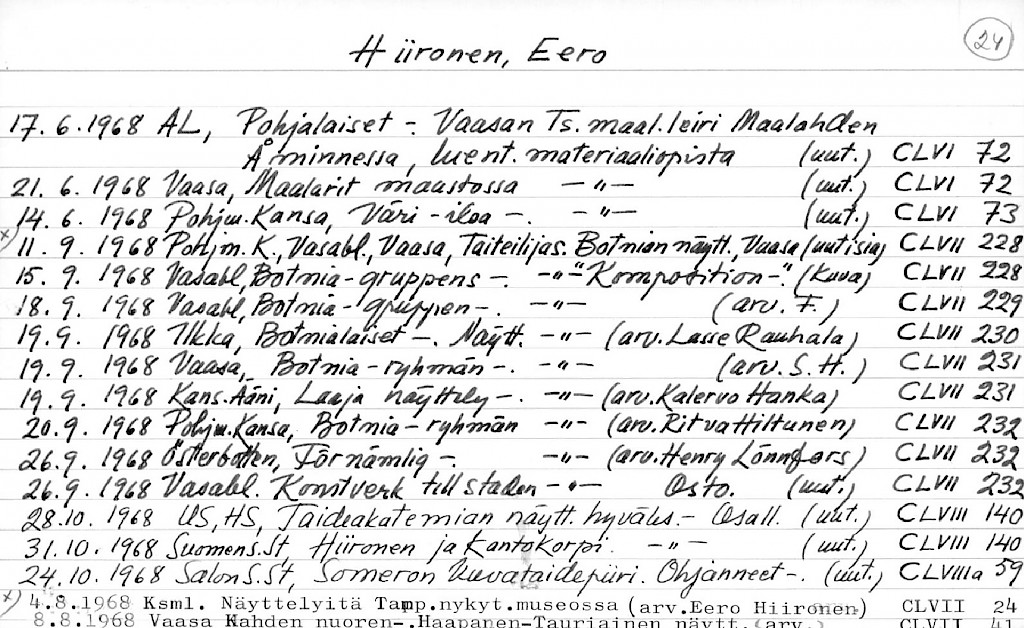 24
Hiironen, Eero
17. 6. 1968 AL, Pohjalaiset -. Vaasan Ts. maal. leiri Maalahden
Åminnessa, luent. materiaaliopista (uut.) CLVI 72
21. 6. 1968 Vaasa, Maalarit maastossa -"- (uut.) CLVI 72
14. 6. 1968 Pohjm. Kansa, Väri-iloa -. -"- (uut.) CLVI 73
x) 11. 9. 1968 Pohjm. K., Vasabl., Vaasa, Taiteilijas. Botnian näytt., Vaasa (uutisia) CLVII 228
15. 9. 1968 Vasabl, Botnia-gruppens -. -"- "Komposition-". (kuva) CLVII 228
18. 9. 1968 Vasabl, Botnia-gruppen -. -"- (arv. F.) CLVII 229
19. 9. 1968 Ilkka, Botnialaiset -. Näytt. -"- (arv. Lasse Rauhala) CLVII 230
19. 9. 1968 Vaasa, Botnia-ryhmän -. -"- (arv. S. H.) CLVII 231
19. 9. 1968 Kans. Ääni, Laaja näyttely -. -"- (arv. Kalervo Hanka) CLVII 231
20. 9. 1968 Pohjm. Kansa, Botnia-ryhmän -"- (arv. Ritva Hiltunen) CLVII 232
26. 9. 1968 Österbotten, Förnämlig -. -"- (arv. Henry Lönnfors) CLVII 232
26. 9. 1968 Vasabl. Konstverk till staden -"- Osto. (uut.) CLVII 232
28. 10. 1968 US, HS, Taideakatemian näytt. hyväks. - Osall. (uut.) CLVIII 140
31. 10. 1968 Suomens. St, Hiironen ja Kantokorpi. -"- (uut.) CLVIII 140
24. 10. 1968 Salon S. St, Someron Kuvataidepiiri. Ohjanneet -. (uut.) CLVIIIa 59
x) 4.8.1968 Ksml. Näyttelyitä Tamp.nykyt.museossa (arv.Eero Hiironen) CLVII 24
8.8.1968 Vaasa Kahden nuoren-.Haapanen-Tauriainen näytt.(arv.) CLVII 41